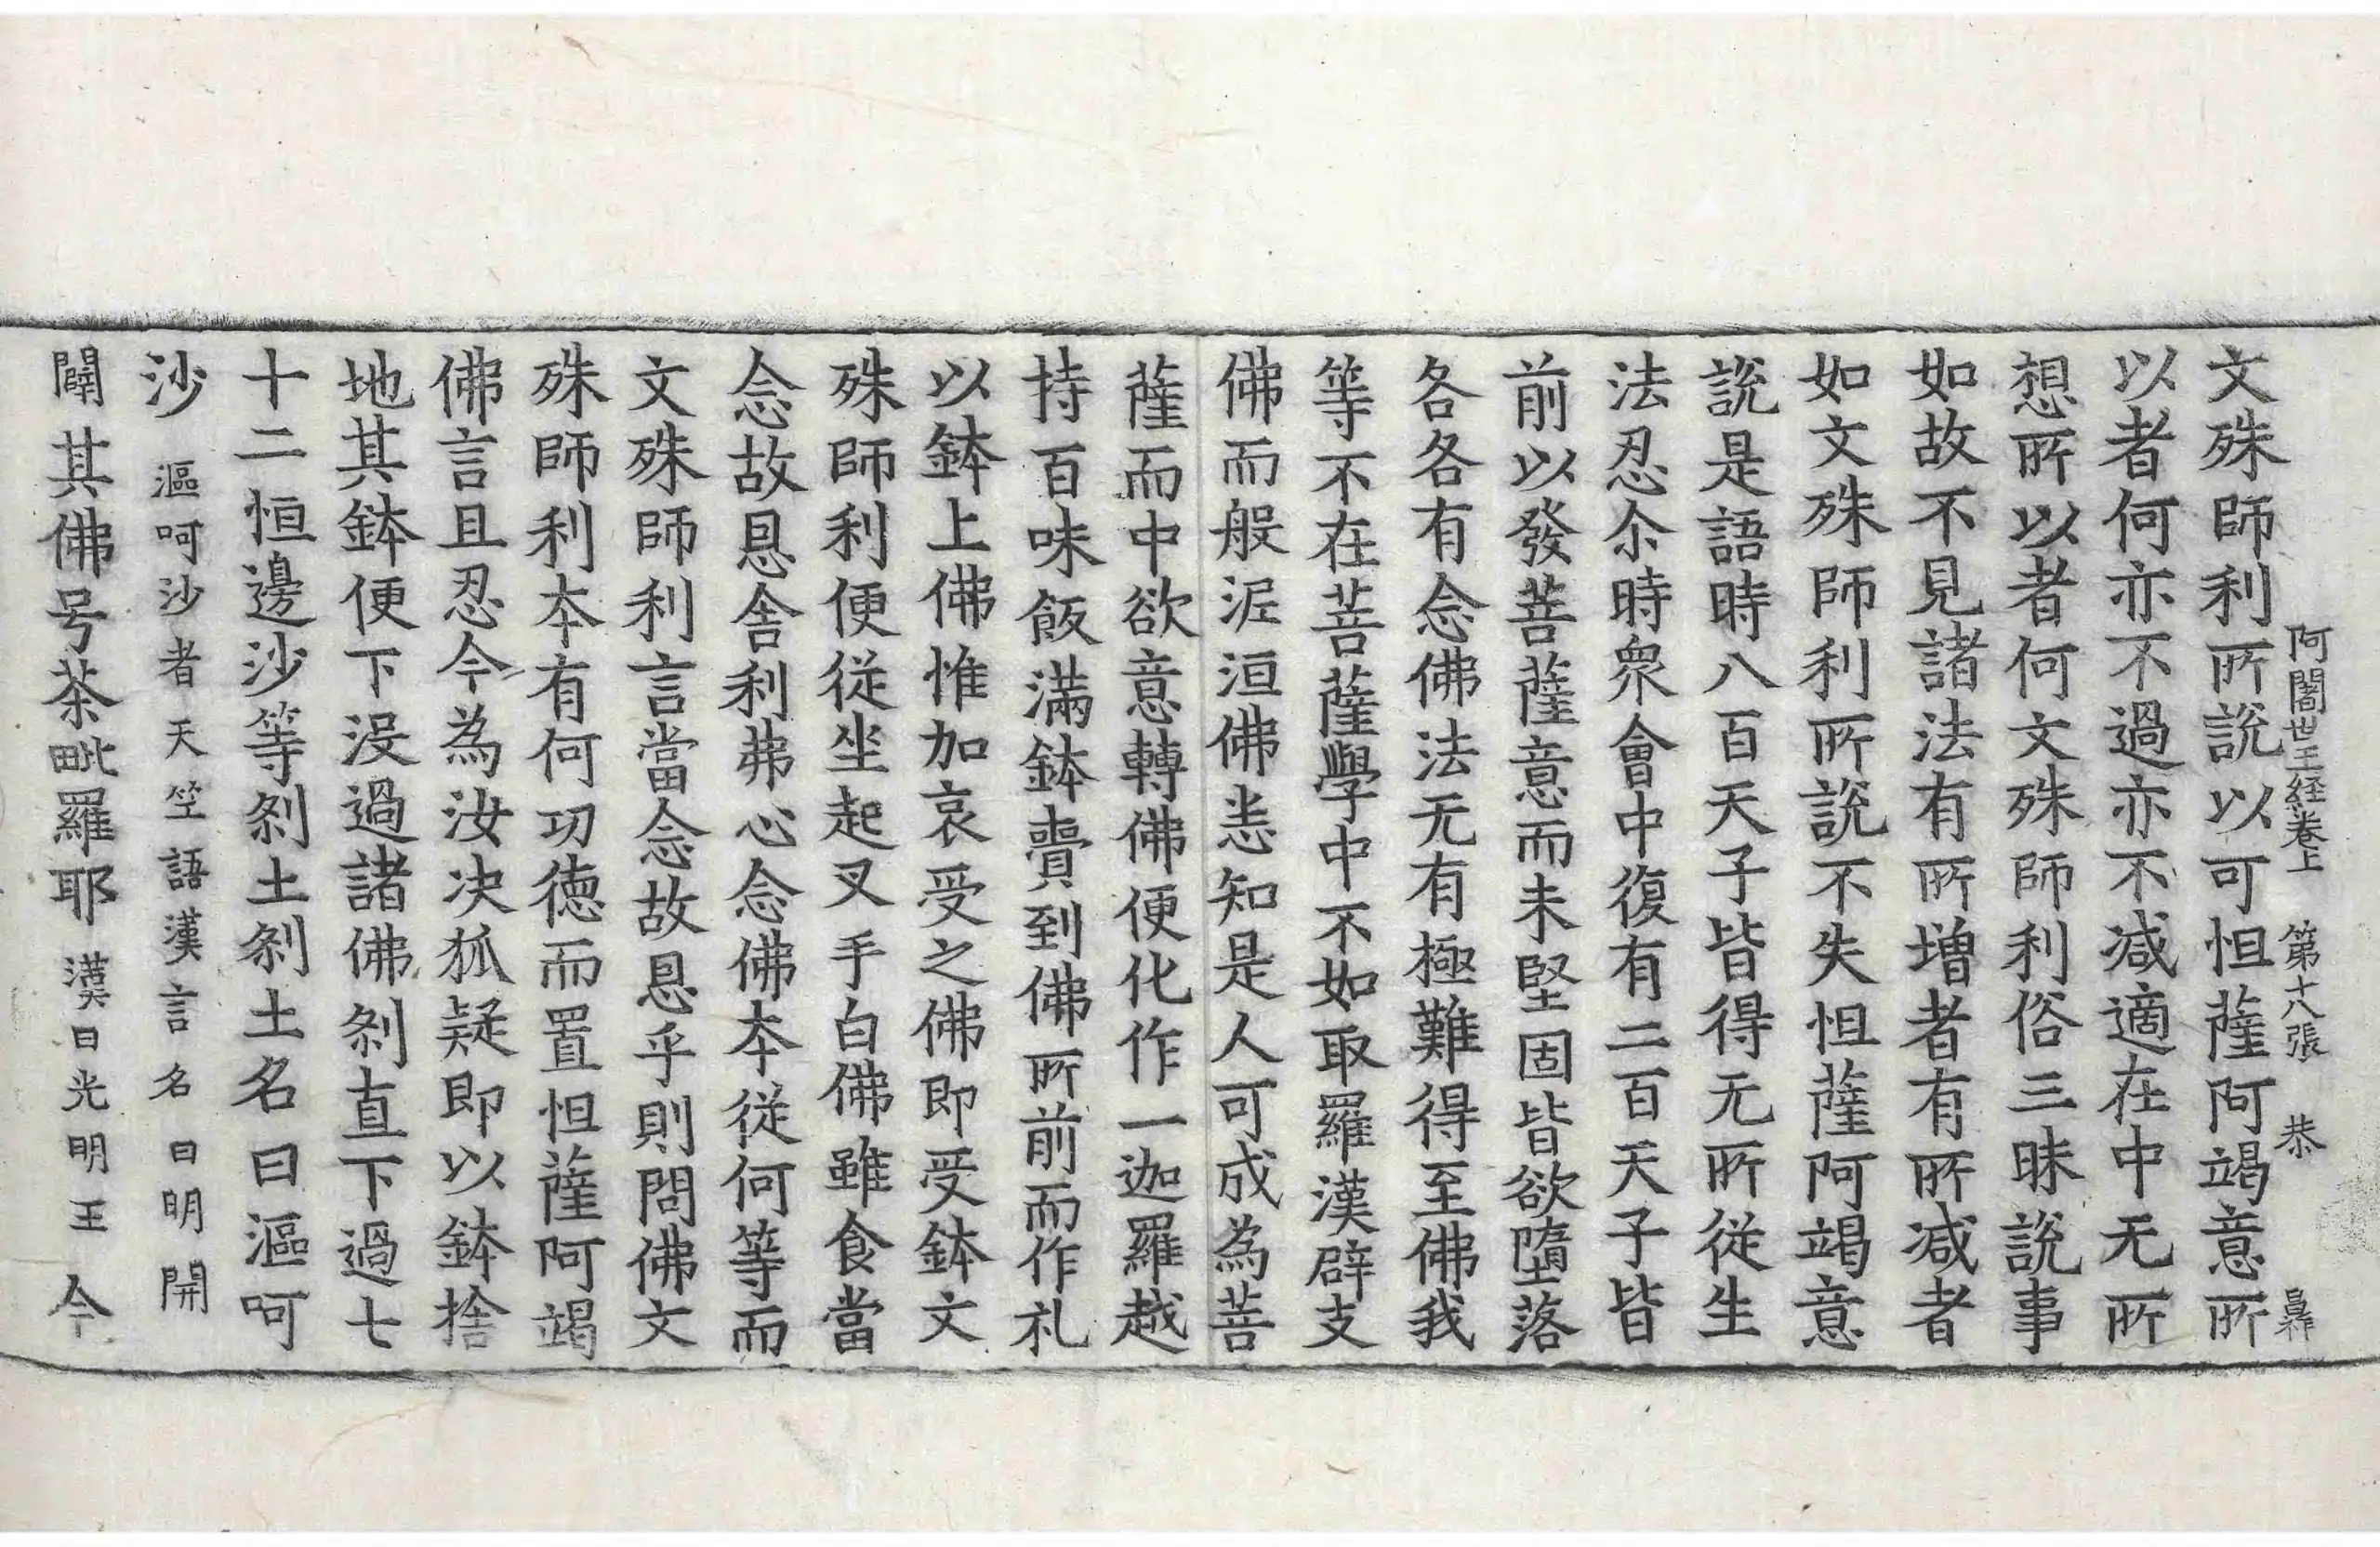 阿闍世王経卷上 第十八張 恭
文殊師利所說以可怛薩阿竭意所
以者何亦不過亦不减適在中无所
想所以者何文殊師利俗三昧說事
如故不見諸法有所増者有所减者
如文殊師利所說不失怛薩阿竭意
說是語時八百天子皆得无所從生
法忍尒時衆會中復有二百天子皆
前以發菩薩意而未堅固皆欲墮落
各各有念佛法无有極難得至佛我
等不在菩薩學中不如取羅漢辟支
佛而般泥洹佛悉知是人可成為菩
薩而中欲意轉佛便化作一迦羅越
持百味飯滿鉢賷到佛所前而作礼
以鉢上佛惟加哀受之佛即受鉢文
殊師利便從坐起叉手白佛雖食當
念故恩舍利弗心念佛本從何等而
文殊師利言當念故恩乎則問佛文
殊師利本有何功德而置怛薩阿竭
佛言且忍今為汝决狐疑即以鉢捨
地其鉢便下没過諸佛刹直下過七
十二恒邊沙等刹土刹土名曰漚呵
沙漚呵沙者天竺語漢言名曰明開
闢其佛号荼毗羅耶漢曰光明王今